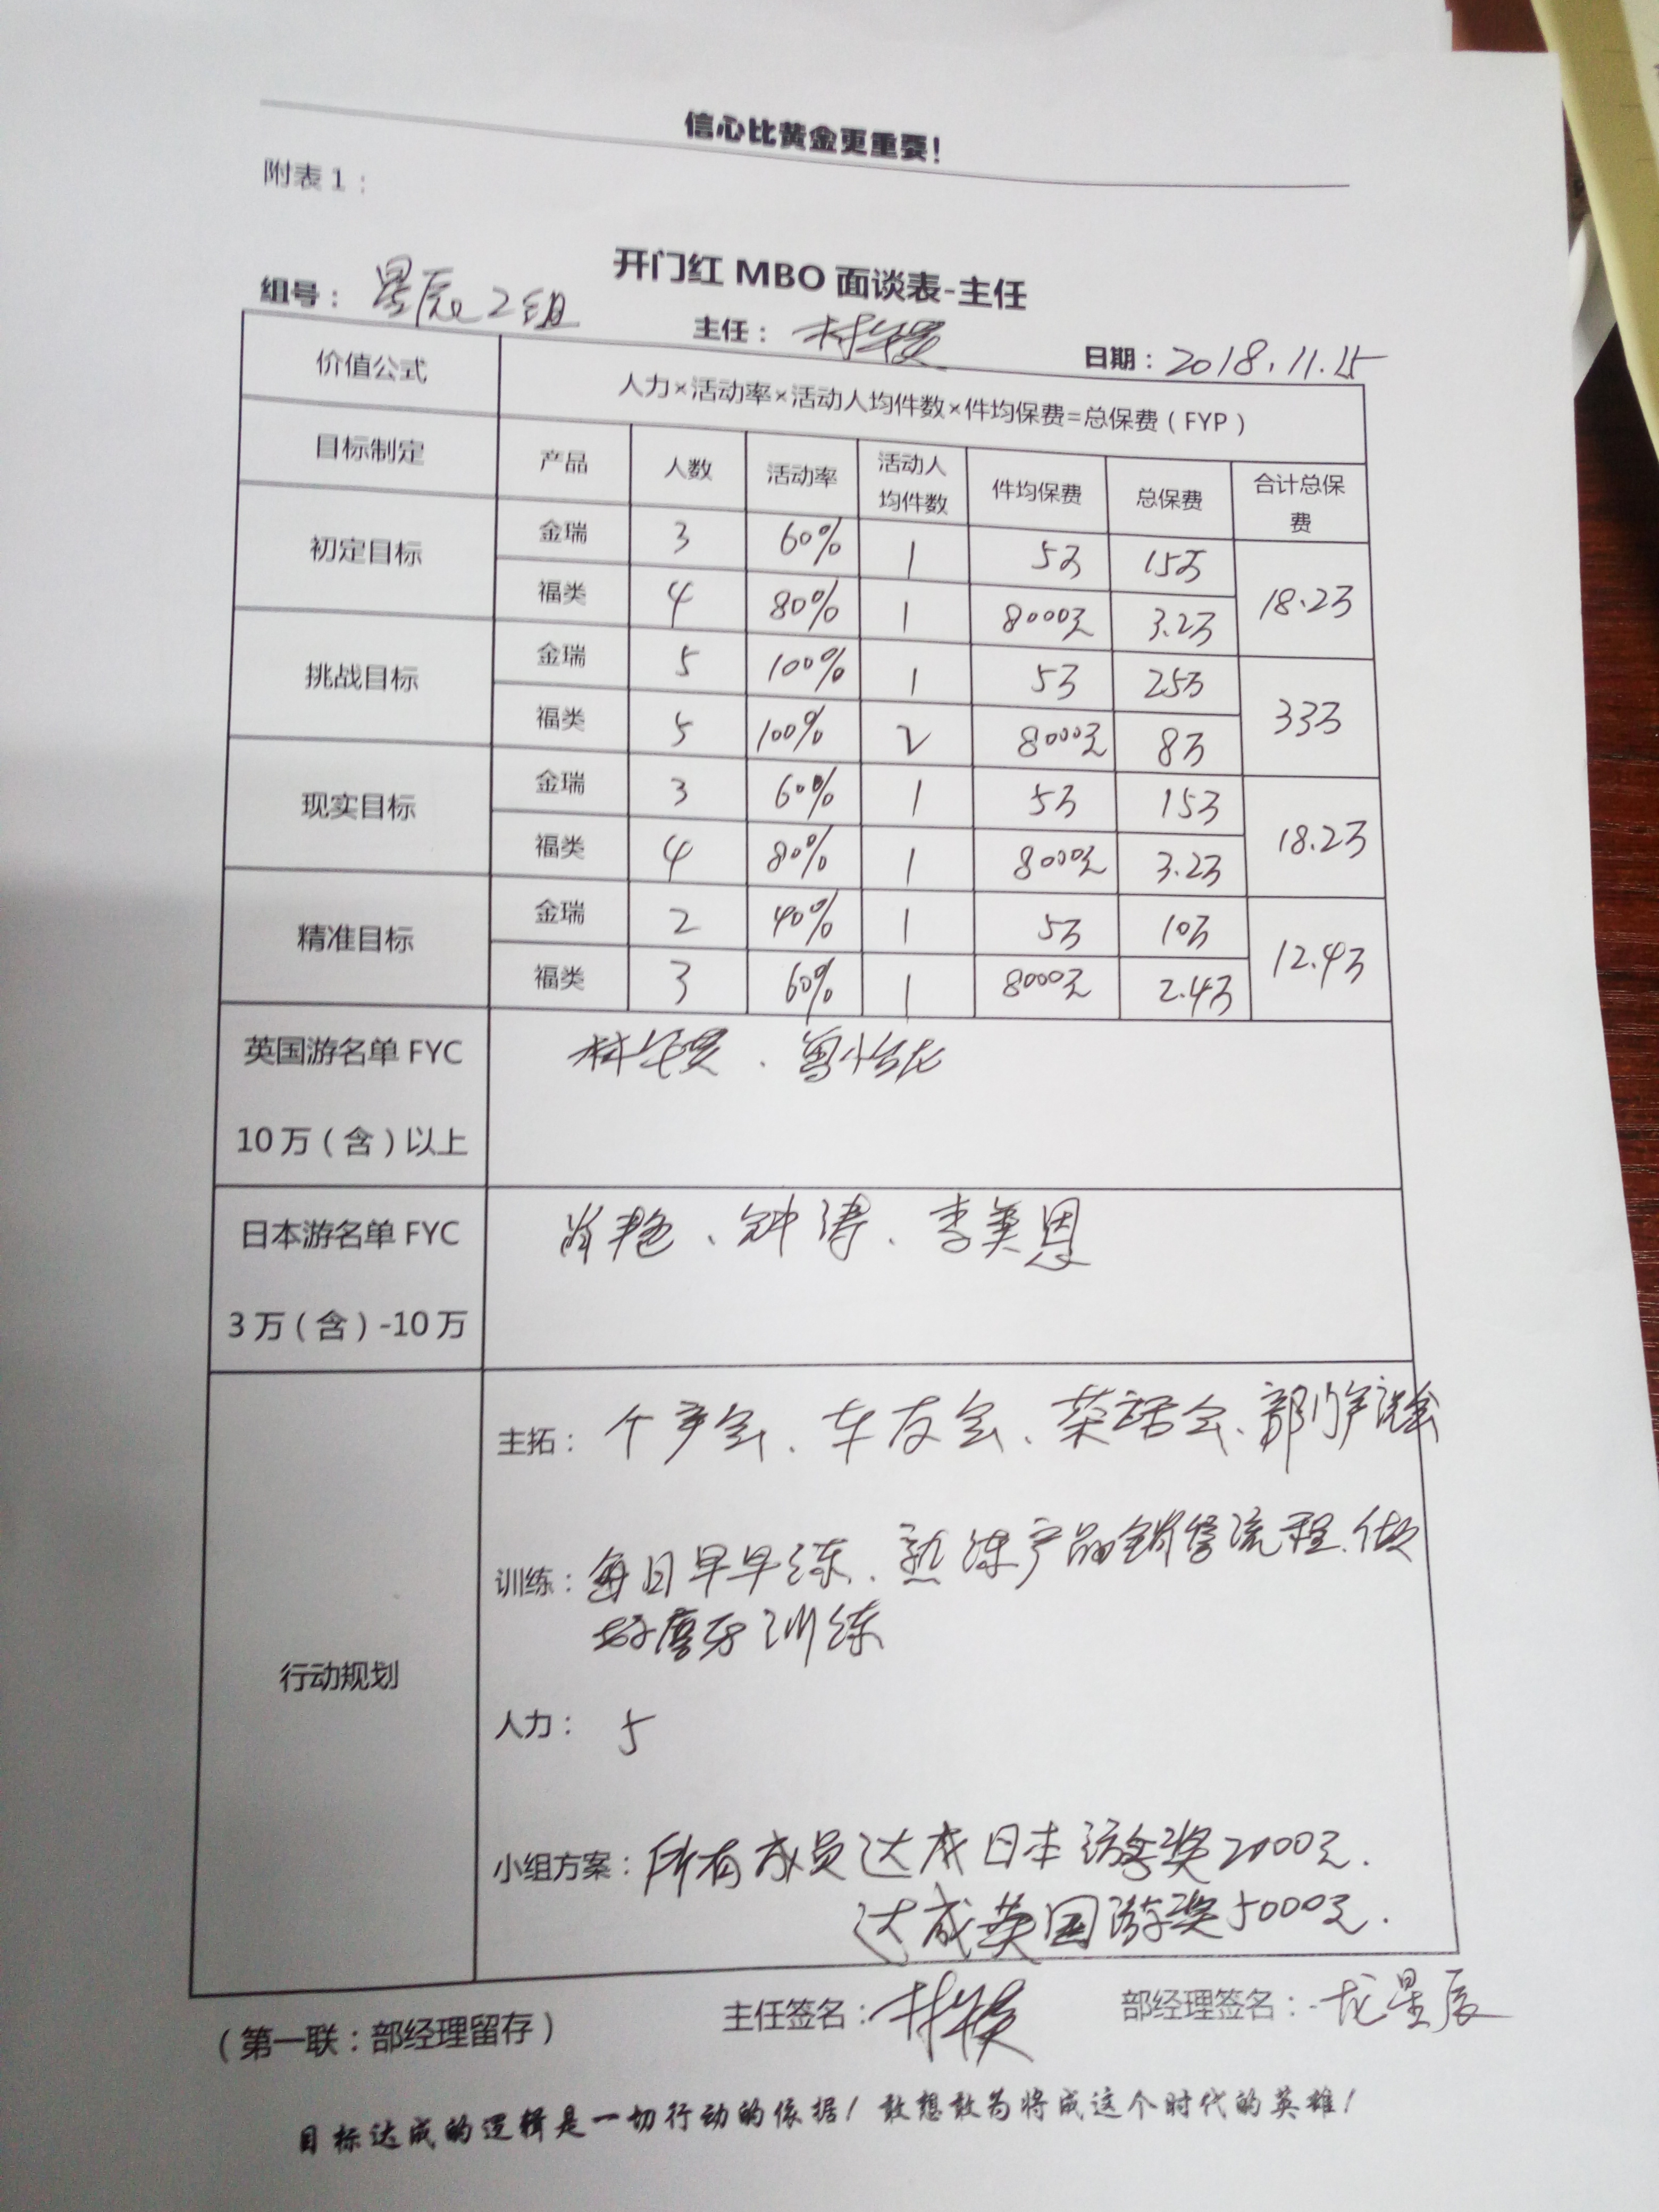 信心比黄金更重要！
附表 1：
开门红 MBO 面谈表-主任
组号： 星辰2组 主任： 日期：2018.11.15
价值公式 人力×活动率×活动人均件数×件均保费=总保费（FYP）
目标制定 产品 人数 活动率 活动人均件数 件均保费 总保费 合计总保费
初定目标 金瑞 3 60% 1 5万 15万 18.2万
福类 4 80% 1 8000元 3.2万
挑战目标 金瑞 5 100% 1 5万 25万 33万
福类 5 100% 2 8000元 8万
现实目标 金瑞 3 60% 1 5万 15万 18.2万
福类 4 80% 1 8000元 3.2万
精准目标 金瑞 2 40% 1 5万 10万 12.4万
福类 3 60% 1 8000元 2.4万
英国游名单 FYC
10 万（含）以上
日本游名单 FYC 肖艳、钟涛、李美恩
3 万（含）-10 万
行动规划
主拓： 个产会、车友会、茶话会、部门产说会
训练：每日早早练、熟练产品销售流程、做
好磨牙训练
人力： 5
小组方案：所有成员达成日本游奖2000元.
达成英国游奖5000元.
（第一联：部经理留存） 主任签名： 部经理签名：龙星辰
目标达成的逻辑是一切行动的依据！敢想敢为将成这个时代的英雄！